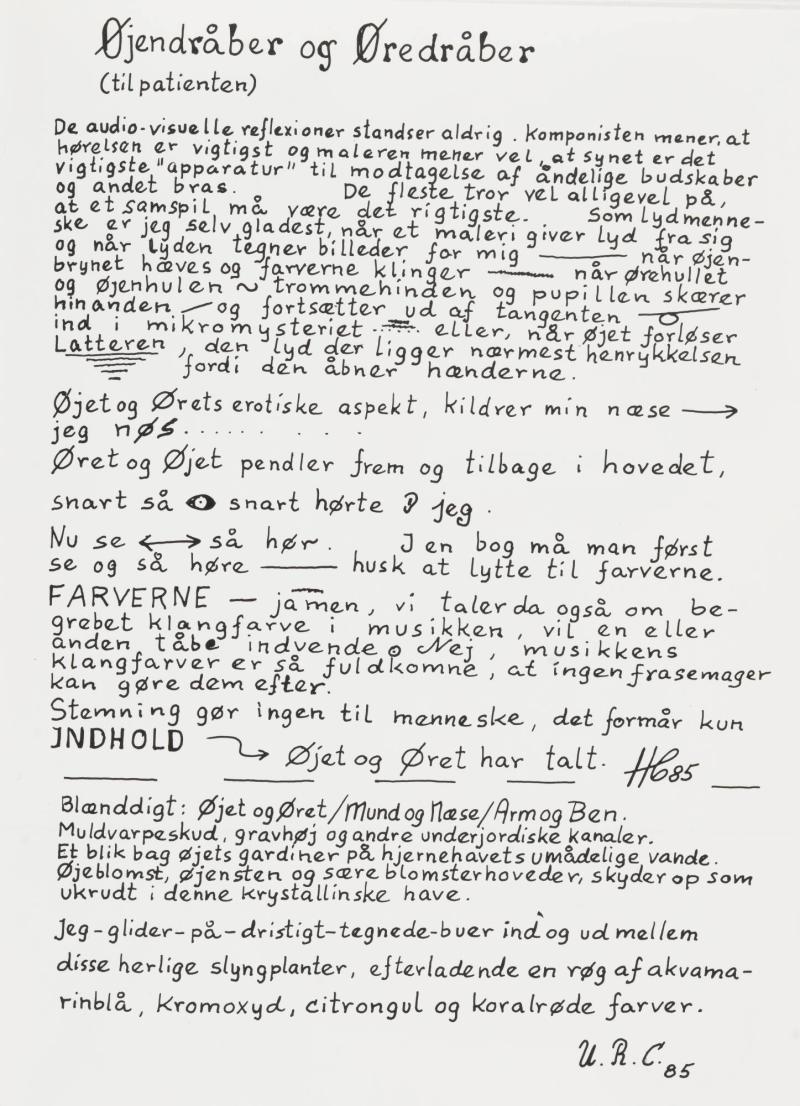 Øjendråber og Øredråber
(til patienten)
De audio-visuelle reflexioner standser aldrig. Komponisten mener, at
hørelsen er vigtigst og maleren mener vel, at synet er det
vigtigste "apparatur" til modtagelse af åndelige budskaber
og andet bras. De fleste tror vel alligevel på,
at et samspil må være det rigtigste. Som lydmenne-
ske er jeg selv gladest, når et maleri giver lyd fra sig
og når lyden tegner billeder for mig — når øjen-
brynet hæves og farverne klinger — når ørehullet
og øjenhulen ~ trommehinden og pupillen skærer
hinanden — og fortsætter ud af tangenten —
ind i mikromysteriet eller, når øjet forløser
Latteren, den lyd der ligger nærmest henrykkelsen
fordi den åbner hænderne.
Øjet og Ørets erotiske aspekt, kildrer min næse →
jeg nøs. . . . . . . . .
Øret og Øjet pendler frem og tilbage i hovedet,
snart så snart hørte jeg.
Nu se ↔ så hør. I en bog må man først
se og så høre — husk at lytte til farverne.
FARVERNE — jamen, vi taler da også om be-
grebet klangfarve i musikken, vil en eller
anden tåbe indvende. Nej, musikkens
klangfarver er så fuldkomne, at ingen frasemager
kan gøre dem efter.
Stemning gør ingen til menneske, det formår kun
INDHOLD → Øjet og Øret har talt. HC 85
Blænddigt: Øjet og Øret/Mund og Næse/Arm og Ben.
Muldvarpeskud, gravhøj og andre underjordiske kanaler.
Et blik bag øjets gardiner på hjernehavets umådelige vande.
Øjeblomst, øjensten og sære blomsterhoveder, skyder op som
ukrudt i denne krystallinske have.
Jeg-glider-på-dristigt-tegnede-buer ind og ud mellem
disse herlige slyngplanter, efterladende en røg af akvama-
rinblå, kromoxyd, citrongul og koralrøde farver.
U.R.C. 85